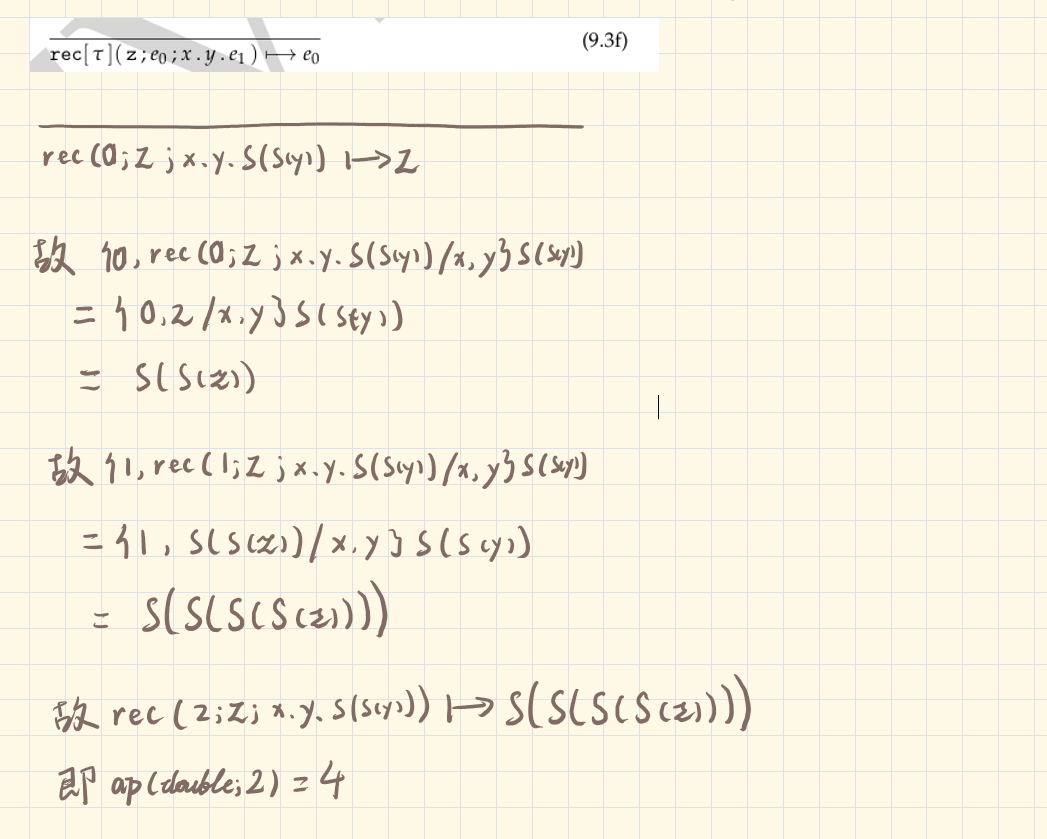 rec[τ](z;e₀;x.y.e₁) ⟼ e₀ (9.3f)
rec(0;z;x.y.S(S(y)) ↦ z
故 {0,rec(0;z;x.y.S(S(y))/x,y}S(S(y))
= {0,z/x,y}S(S(y))
= S(S(z))
故 {1,rec(1;z;x.y.S(S(y))/x,y}S(S(y))
= {1, S(S(z))/x,y}S(S(y))
= S(S(S(S(z))))
故 rec(2;z;x.y.S(S(y))) ↦ S(S(S(S(z))))
即 ap(double;2) = 4